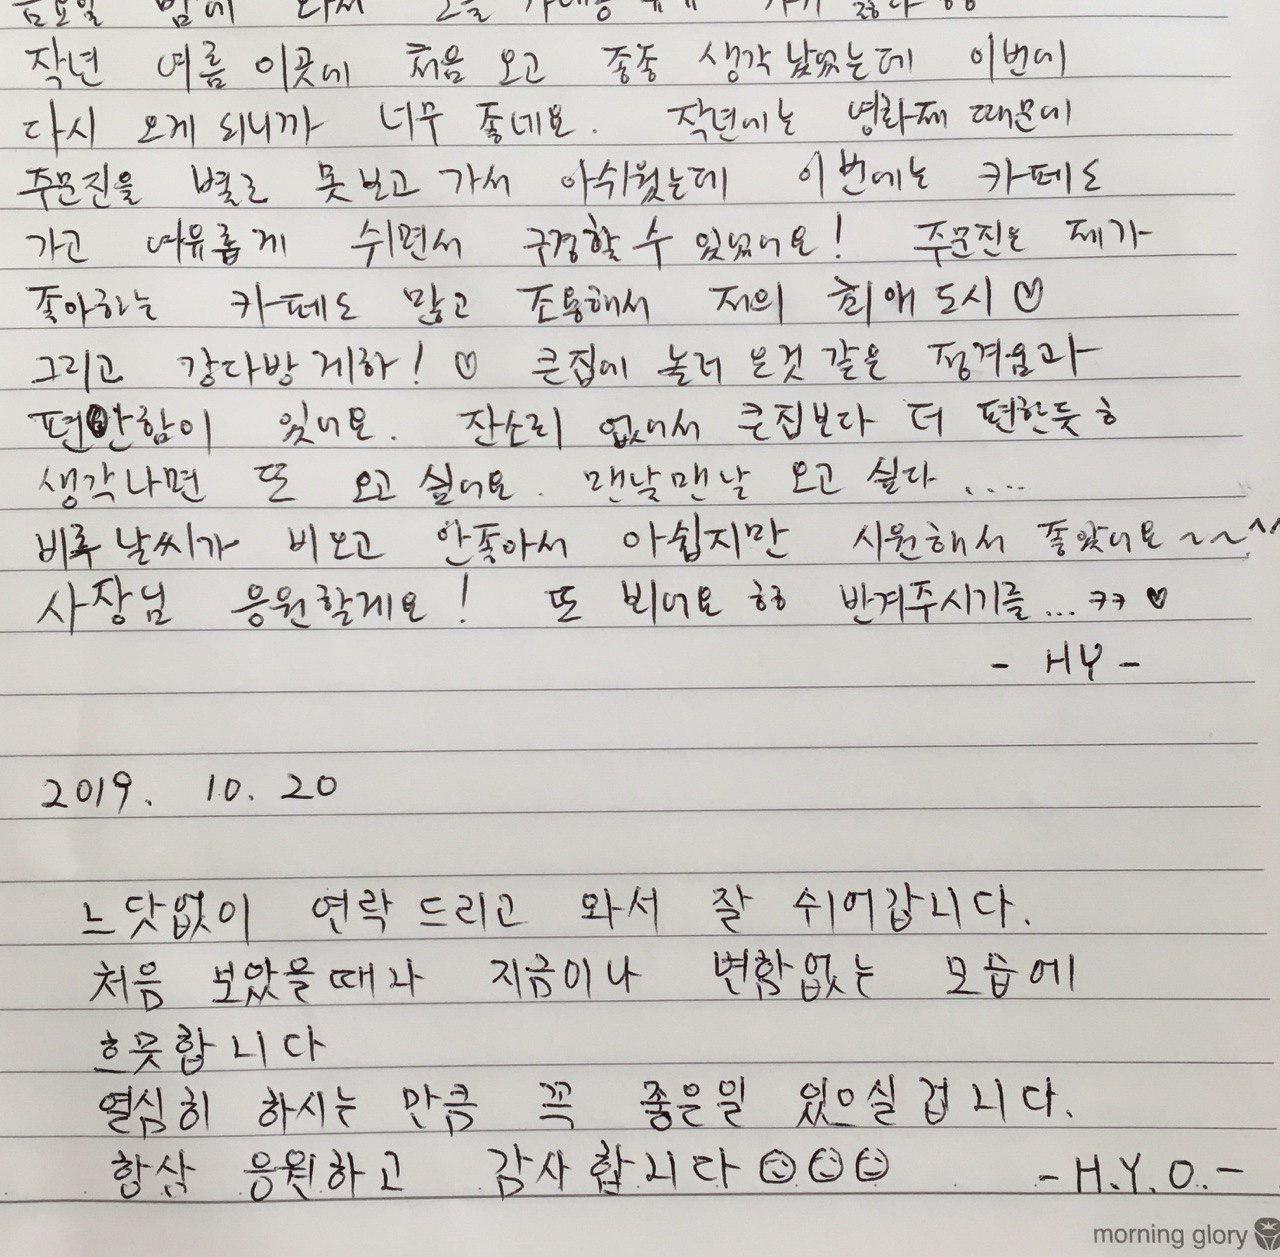 작년 여름 이곳에 처음 오고 종종 생각났었는데 이번에
다시 오게 되니까 너무 좋네요. 작년에는 영화제 때문에
주문진을 별로 못보고 가서 아쉬웠는데 이번에는 카페도
가고 여유롭게 쉬면서 구경할 수 있었어요! 주문진은 제가
좋아하는 카페도 많고 조용해서 저의 최애 도시♡
그리고 강다방 게하! ♡ 큰집에 놀러 온것 같은 정겨움과
편안함이 있어요. 잔소리 없어서 큰집보다 더 편한듯ㅎ
생각나면 또 오고 싶어요. 맨날맨날 오고 싶다 ....
비록 날씨가 비오고 안좋아서 아쉽지만 시원해서 좋았어요~~^^
사장님 응원할게요! 또 뵈어요 ㅎㅎ 반겨주시기를...ㅋㅋ♥
- HY -
2019. 10. 20
느닷없이 연락드리고 와서 잘 쉬어갑니다.
처음 보았을때나 지금이나 변함없는 모습에
흐뭇합니다
열심히 하시는 만큼 꼭 좋은일 있으실겁니다.
항상 응원하고 감사합니다☺☺☺ -H.Y.O.-
morning glory